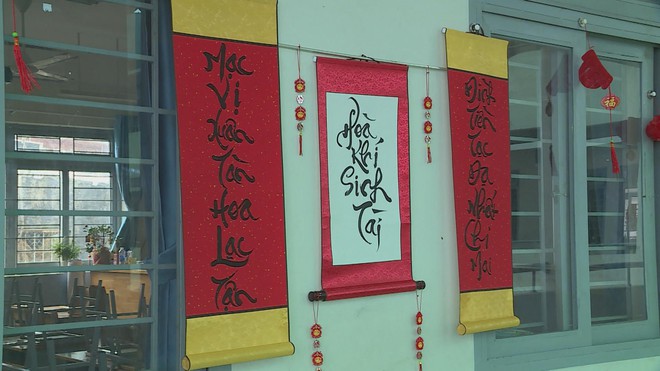 Mạc
Vị
Xuân
Tàn
Hoa
Lạc
Tận
Hoà
Khí
Sinh
Tài
Đình
Tiền
Tạc
Dạ
Nhất
Chi
Mai
福